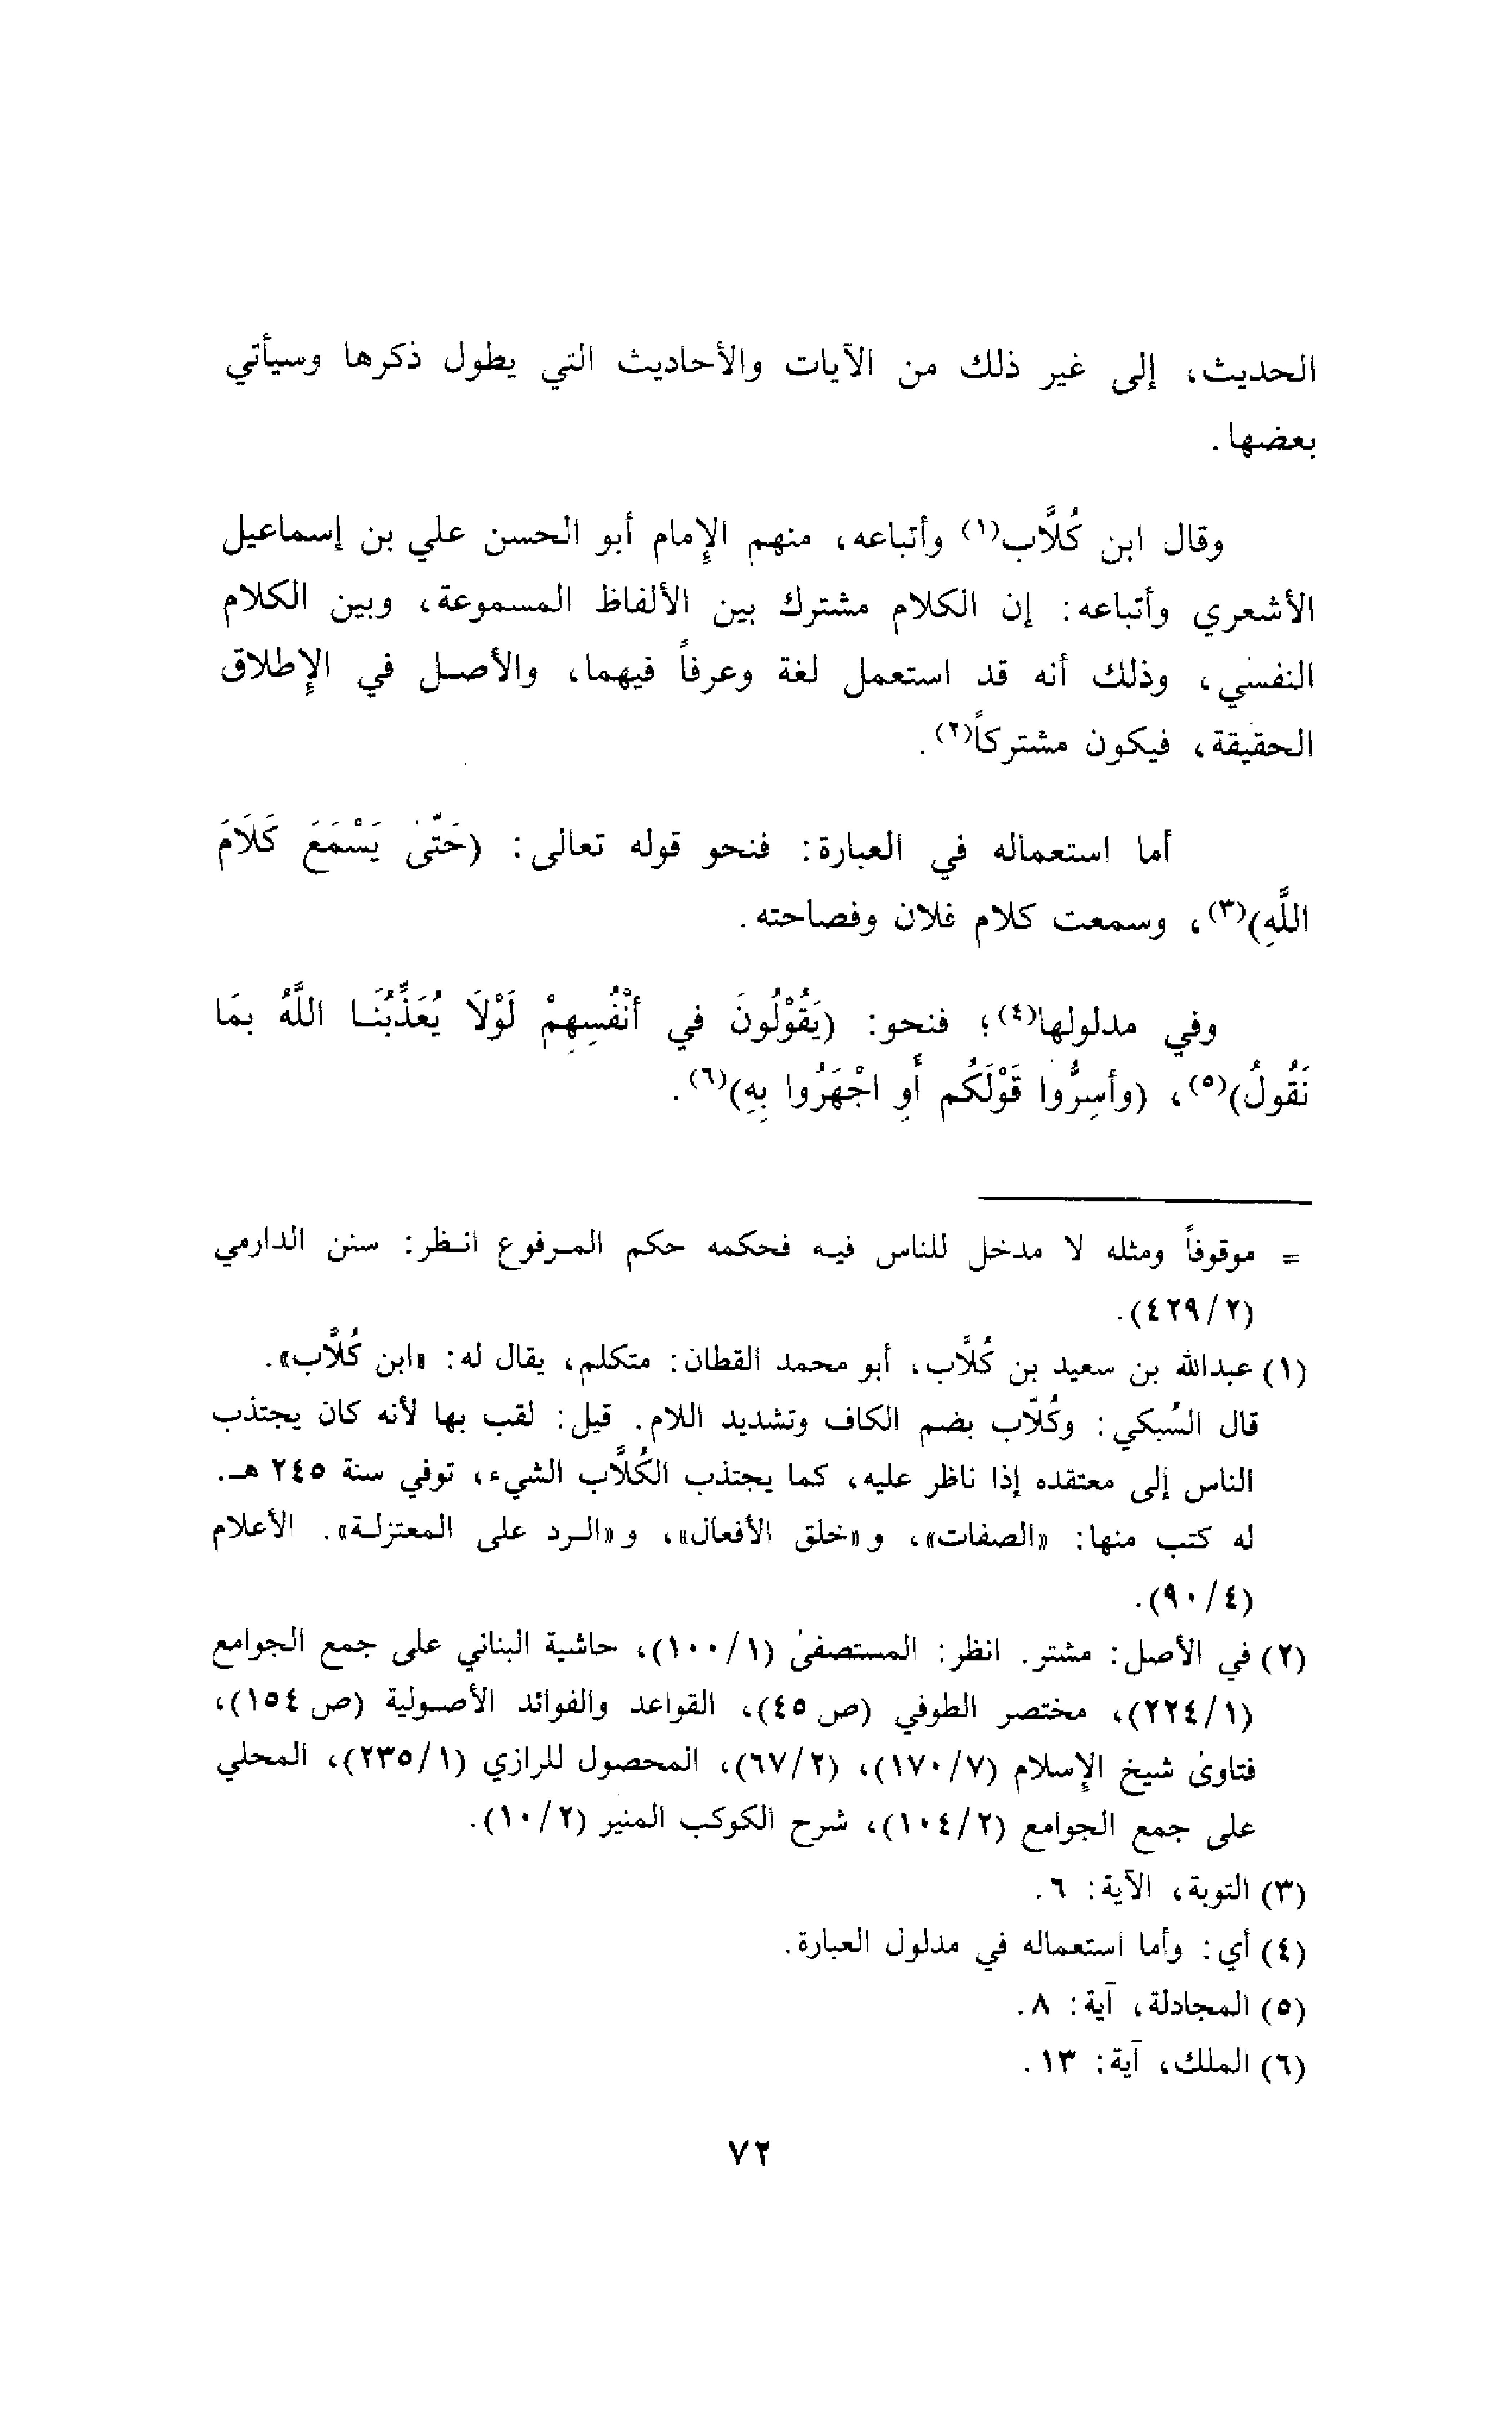 الحديث، إلى غير ذلك من الآيات والأحاديث التي يطول ذكرها وسيأتي
بعضها.
وقال ابن كُلَّاب(١) وأتباعه، منهم الإمام أبو الحسن علي بن إسماعيل
الأشعري وأتباعه: إن الكلام مشترك بين الألفاظ المسموعة، وبين الكلام
النفسي، وذلك أنه قد استعمل لغة وعرفاً فيهما، والأصل في الإطلاق
الحقيقة، فيكون مشتركاً(٢).
أما استعماله في العبارة: فنحو قوله تعالى: (حَتَّىٰ يَسْمَعَ كَلَامَ
اللَّهِ)(٣)، وسمعت كلام فلان وفصاحته.
وفي مدلولها(٤)؛ فنحو: (يَقُوْلُونَ في أنْفُسِهِمْ لَوْلَا يُعَذِّبُنَا اللَّهُ بِمَا
نَقُولُ)(٥)، (وأسِرُّوا قَوْلَكُم أوِ اجْهَرُوا بِهِ)(٦).
= موقوفاً ومثله لا مدخل للناس فيه فحكمه حكم المرفوع انظر: سنن الدارمي
(٤٢٩/٢).
(١) عبدالله بن سعيد بن كُلَّاب، أبو محمد القطان: متكلم، يقال له: «ابن كُلَّاب».
قال السُبكي: وكُلّاب بضم الكاف وتشديد اللام. قيل: لقب بها لأنه كان يجتذب
الناس إلى معتقده إذا ناظر عليه، كما يجتذب الكُلَّاب الشيء، توفي سنة ٢٤٥ هـ.
له كتب منها: «الصفات»، و«خلق الأفعال»، و«الرد على المعتزلة». الأعلام
(٩٠/٤).
(٢) في الأصل: مشتر. انظر: المستصفىٰ (١٠٠/١)، حاشية البناني على جمع الجوامع
(٢٢٤/١)، مختصر الطوفي (ص ٤٥)، القواعد والفوائد الأصولية (ص ١٥٤)،
فتاوىٰ شيخ الإسلام (١٧٠/٧)، (٦٧/٢)، المحصول للرازي (٢٣٥/١)، المحلي
على جمع الجوامع (١٠٤/٢)، شرح الكوكب المنير (١٠/٢).
(٣) التوبة، الآية: ٦.
(٤) أي: وأما استعماله في مدلول العبارة.
(٥) المجادلة، آية: ٨.
(٦) الملك، آية: ١٣.
٧٢